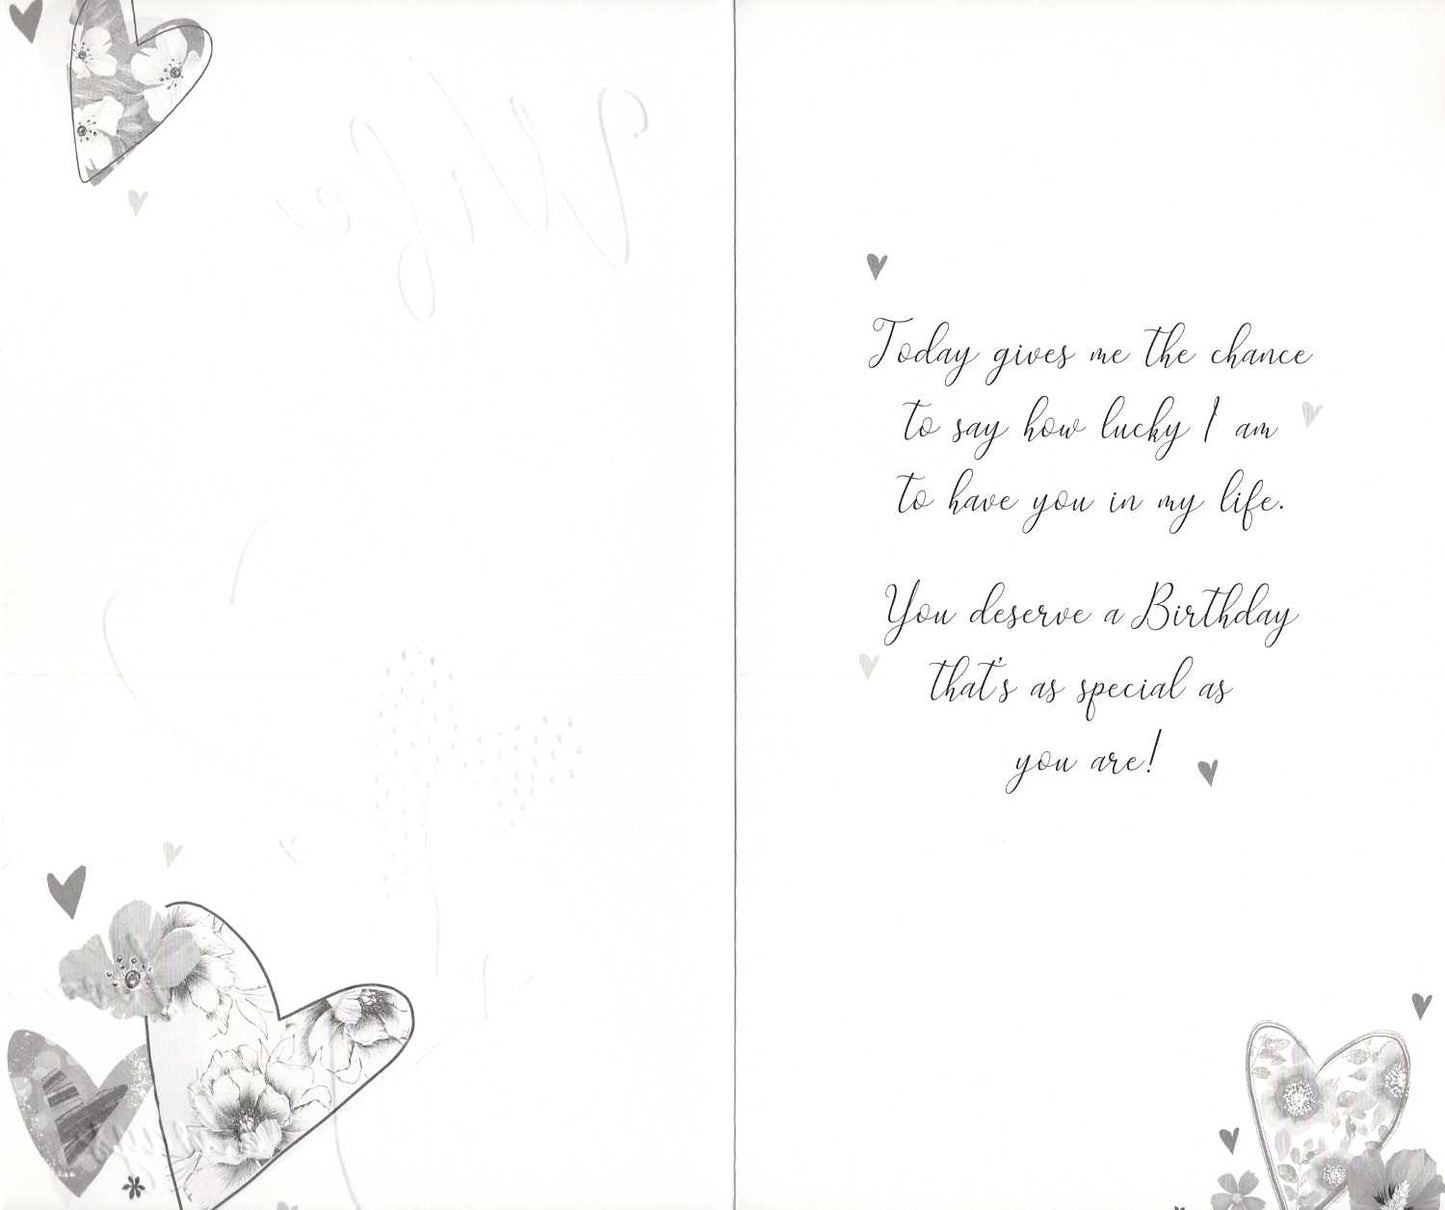 Wife
Today gives me the chance
to say how lucky I am
to have you in my life.
You deserve a Birthday
that's as special as
you are!